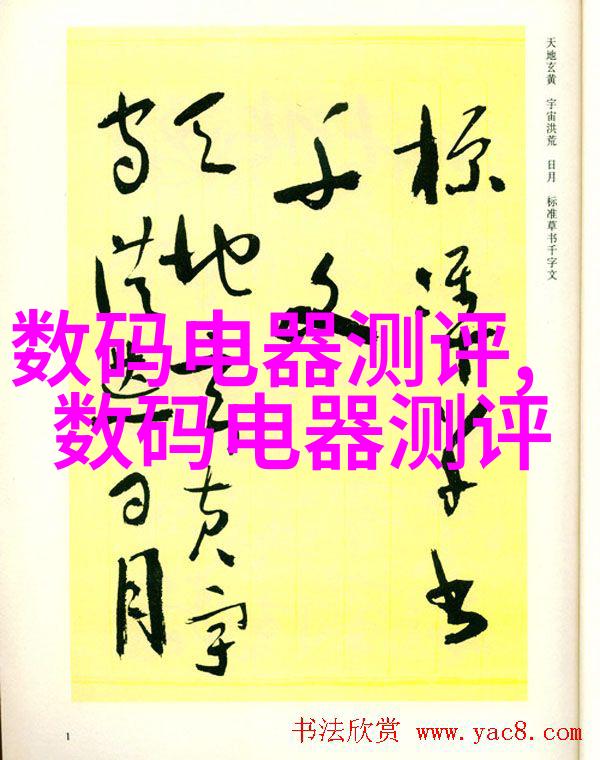 天地玄黄 宇宙洪荒 日月 标准草书千字文
标准草书
千文
天地玄黄宇
宙洪荒日月
数码电器测评,
数码电器测评
1
书法欣赏 www.yac8.com